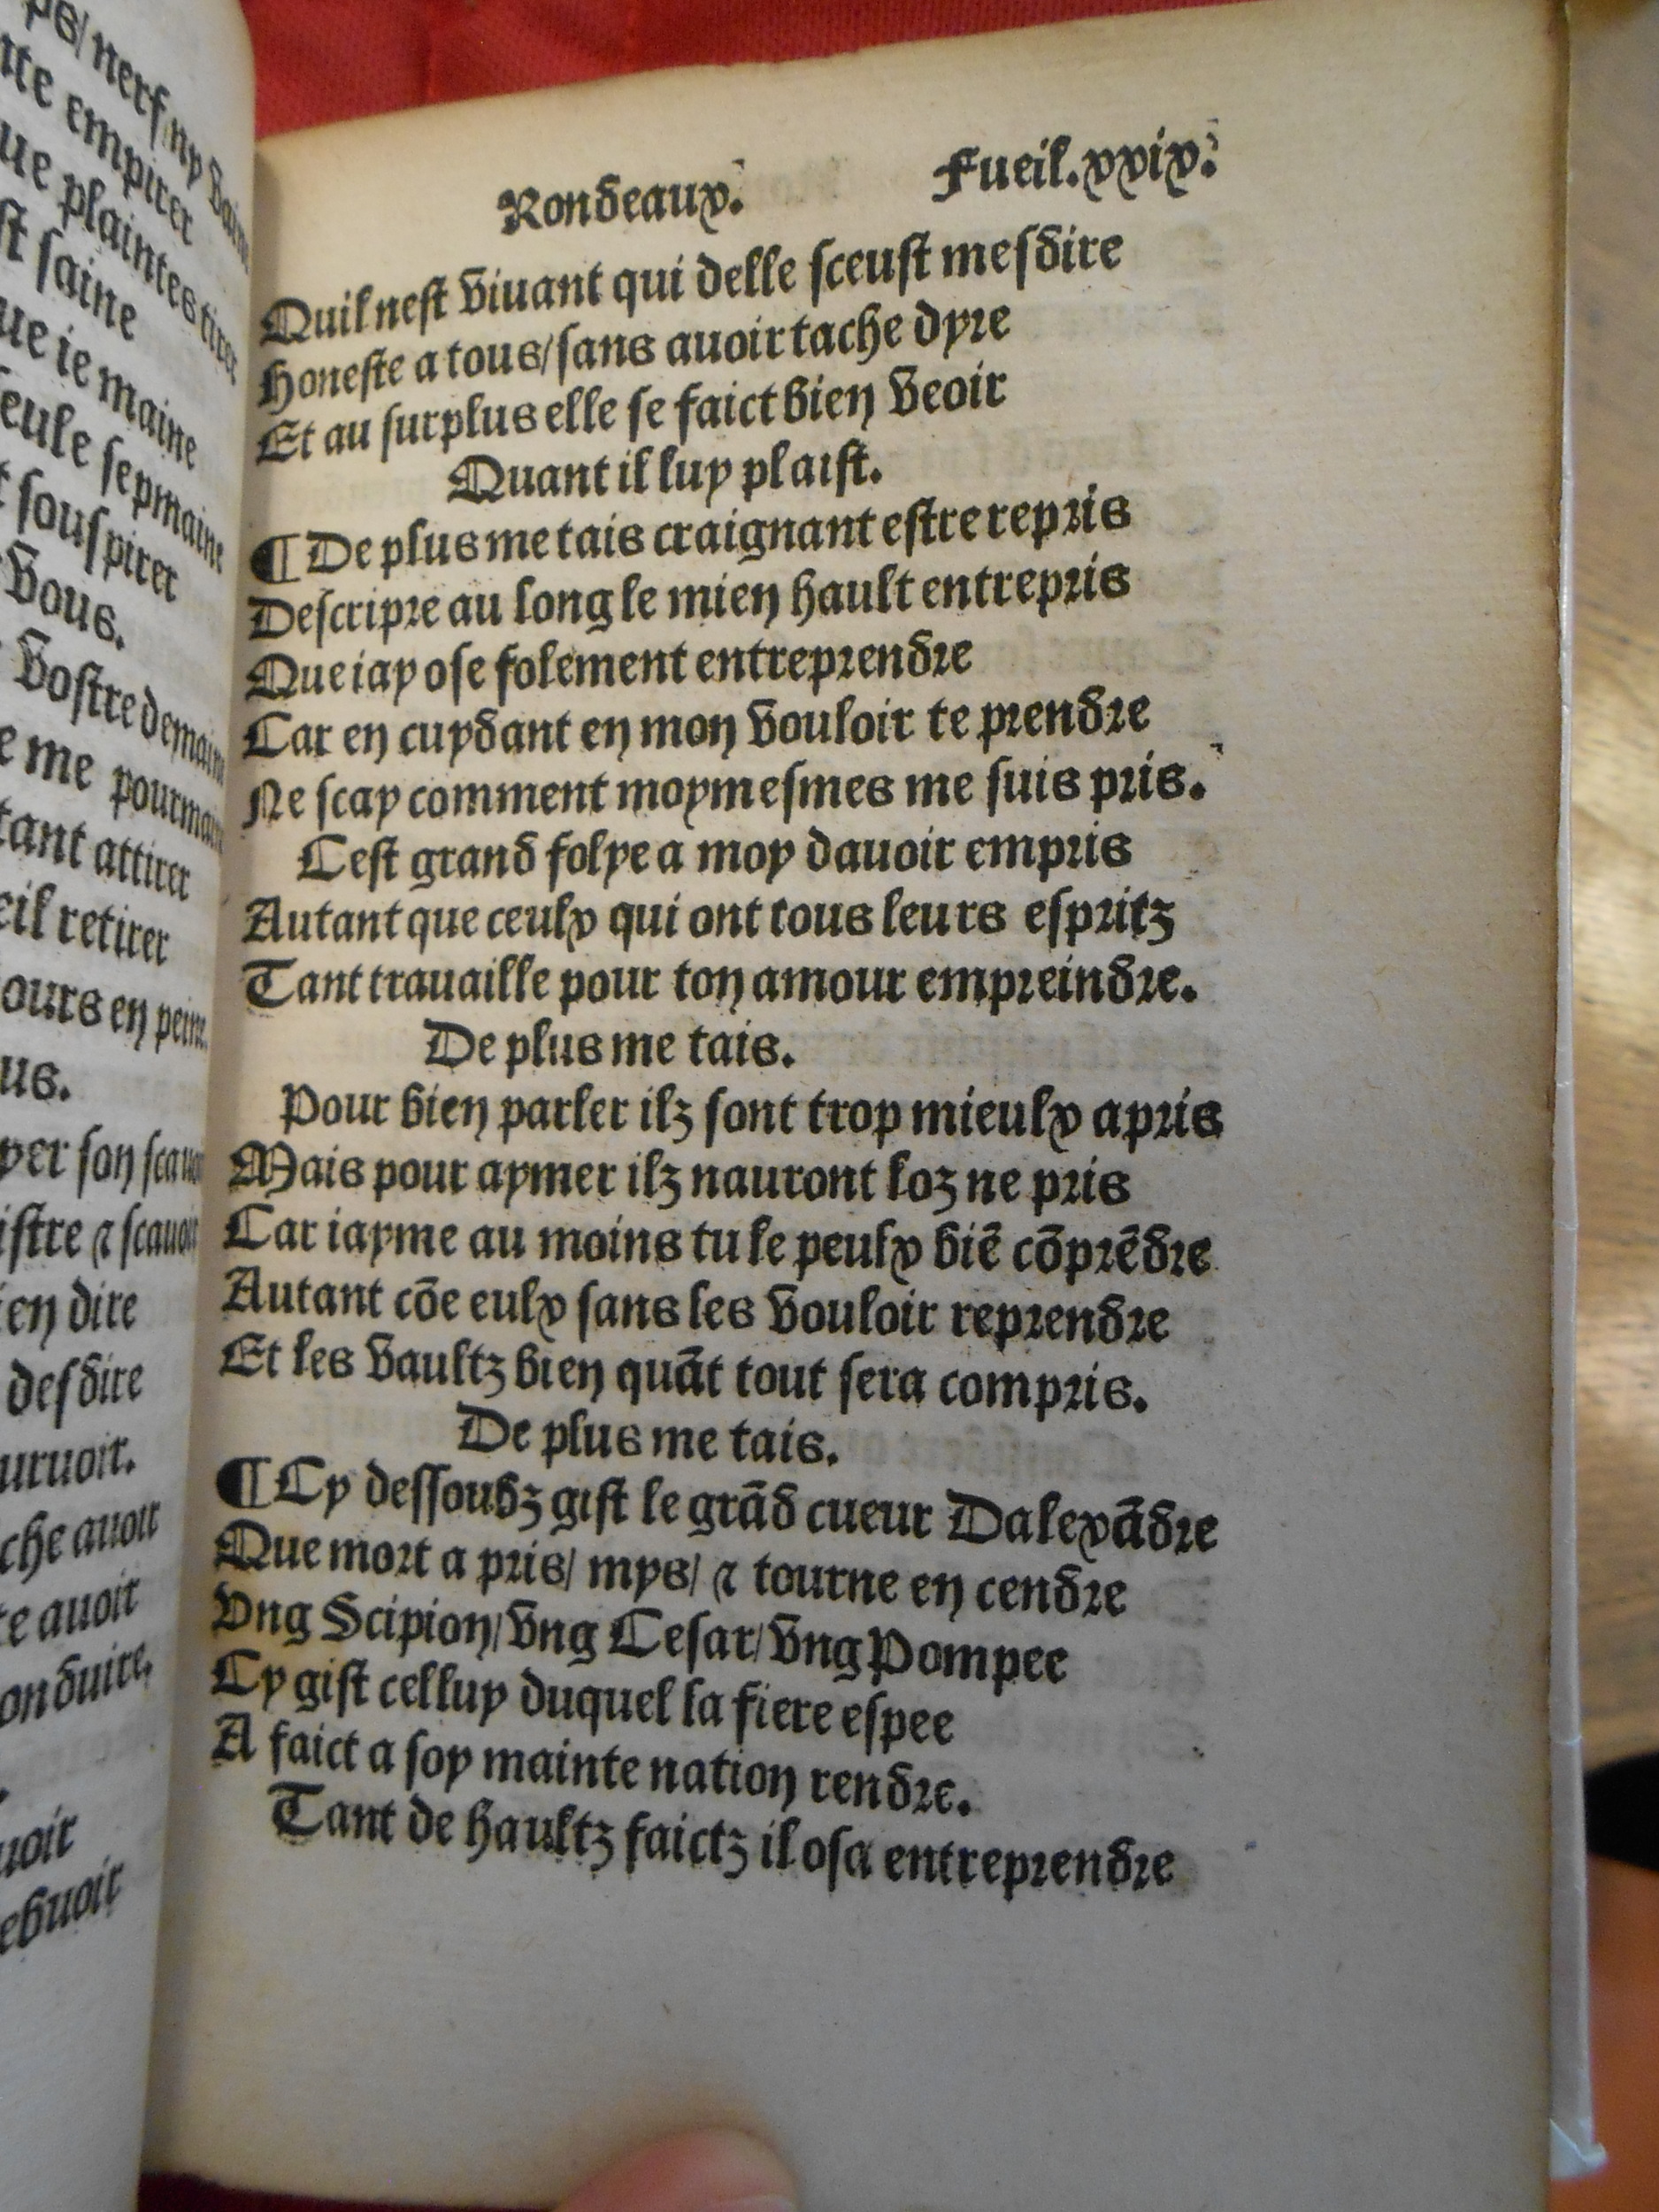 ps/ nerf ny
empirer
plaintes tirer
saine
ie maine
sepmaine
souspirer
Vous.
Vostre
me
tant attirer
retirer
en
son
⁊
en dire
desdire
auoir
auoir
Rondeaux. Fueil.xxix.
Quil nest viuant qui delle sceust mesdire
Honeste a tous/sans auoir tache dyre
Et au surplus elle se faict bien veoir
Quant il luy plaist.
¶ De plus me tais craignant estre repris
Descripre au long le mien hault entrepris
Que iay ose folement entreprendre
Car en cuydant en mon vouloir te prendre
Ne scay comment moymesmes me suis pris.
Cest grand folye a moy dauoir empris
Autant que ceulx qui ont tous leurs espritz
Tant trauaille pour ton amour empreindre.
De plus me tais.
Pour bien parler ilz sont trop mieulx apris
Mais pour aymer ilz nauront loz ne pris
Car iayme au moins tu le peulx biē cōprēdre
Autant cōe eulx sans les vouloir reprendre
Et les vaultz bien quāt tout sera compris.
De plus me tais.
¶ Cy dessoubz gist le grād cueur Dalexādre
Que mort a pris/ mys/ ⁊ tourne en cendre
Vng Scipion/vng Cesar/vng Pompee
Cy gist celluy duquel la fiere espee
A faict a soy mainte nation rendre.
Tant de haultz faictz il osa entreprendre